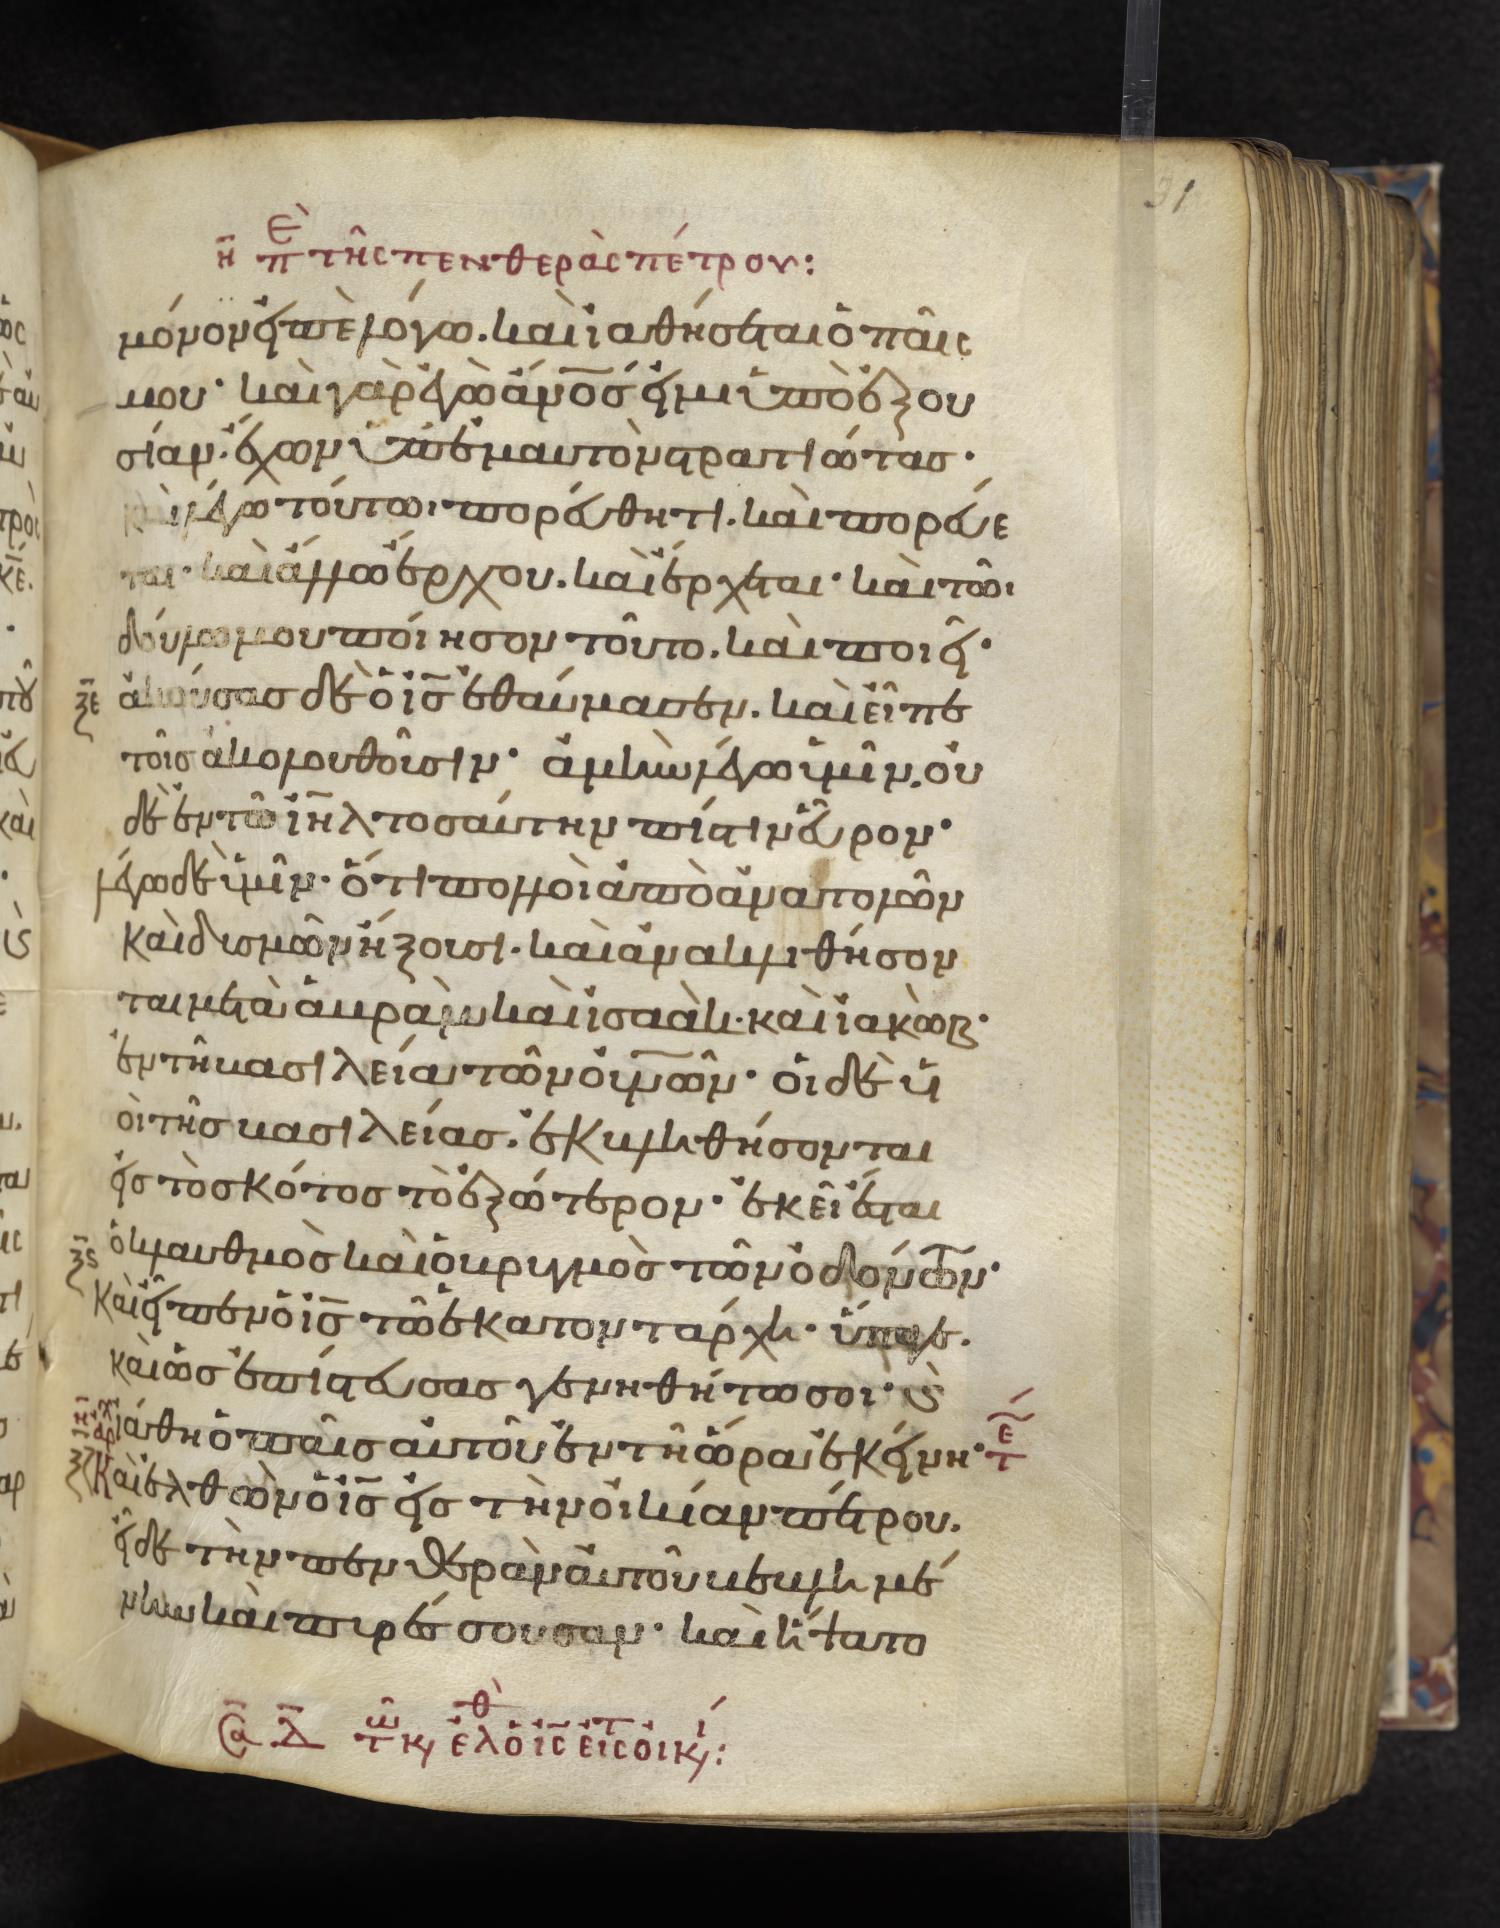 31
η̄ ΠῈ τῆς πενθερὰς πέτρου:
μόνον εἰπὲ λόγω. καὶ ἰαθήσεται ὁ παῖς
μου· καὶ γὰρ ἐγὼ ἄν̅ο̅ς εἰμι ὑπὸ ἐξου
σίαν. ἔχων ὑπ' ἐμαυτὸν στρατιώτας·
καὶ λέγω τούτω· πορεύθητι. καὶ πορεύε
ται· καὶ ἄλλω ἔρχου. καὶ ἔρχεται· καὶ τῶ
δούλω μου ποίησον τοῦτο. καὶ ποιεῖ·
ξ̅ε̅ ἀκούσας δὲ ὁ ι̅ς̅ ἐθαύμασεν. καὶ εἶπε
τοῖς ἀκολουθοῦσιν· ἀμὴν λέγω ὑμῖν. οὐ
δὲ ἐν τῶ ι̅η̅λ̅ τοσαύτην πίστιν εὗρον·
λέγω δὲ ὑμῖν· ὅτι πολλοὶ ἀπὸ ἀνατολῶν
καὶ δυσμῶν ἥξουσι. καὶ ἀνακλιθήσον
ται μετὰ ἀβραὰμ καὶ ἰσαὰκ. καὶ ἰακὼβ·
ἐν τῆ βασιλεία τῶν ο̅υ̅ν̅ω̅ν̅· οἱ δὲ υἱ
οὶ τῆς βασιλείας. ἐκβληθήσονται
εἰς τὸ σκότος τὸ ἐξώτερον· ἐκεῖ ἔσται
ὁ κλαυθμὸς καὶ ὁ βρυγμὸς τῶν ὀδόντων·
ξ̅ς̅ Καὶ εἶπεν ὁ ι̅ς̅ τῶ ἑκατοντάρχη· ὕπαγε.
καὶ ὡς ἐπίστευσας γενηθήτω σοι· ϗ
ἰάθη ὁ παῖς αὐτοῦ ἐν τῆ ὥρα ἐκείνη· τε
ξ̅ζ̅ Καὶ ἐλθὼν ὁ ι̅ς̅ εἰς τὴν οἰκίαν πέτρου.
εἶδε τὴν πενθερὰν αὐτοῦ βεβλημέ
νην καὶ πυρέσσουσαν· καὶ ἥψατο